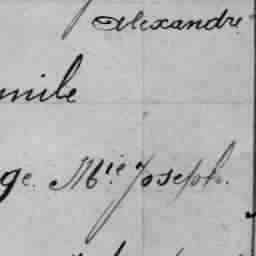 Alexandre
mile
ge. Mie Joseph.